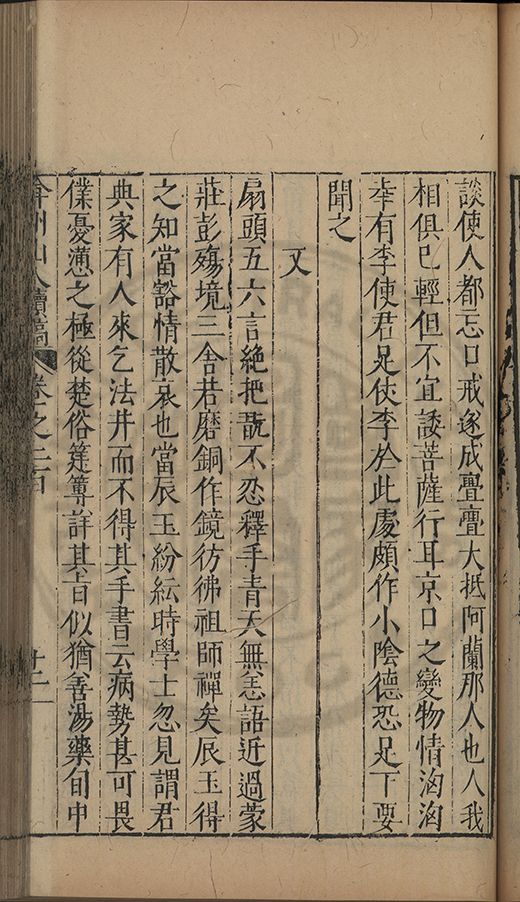 談使人都忘口戒遂成亹亹大抵阿蘭那人也人我
相俱已輕但不宜諉菩薩行耳京口之變物情洶洶
幸有李使君足仗李於此處頗作小陰德恐足下要
聞之
又
扇頭五六言絕把翫不忍釋手青天無恙語近過蒙
莊彭殤境三舍若磨銅作鏡彷彿祖師禪矣辰玉得
之知當豁情散哀也當辰玉紛紜時學士忽見謂君
典家有人來乞法井而不得其手書云病勢甚可畏
僕憂懣之極從楚俗筳篿詳其旨似猶善湯藥旬中
弇州山人續稿 卷之二百 十二